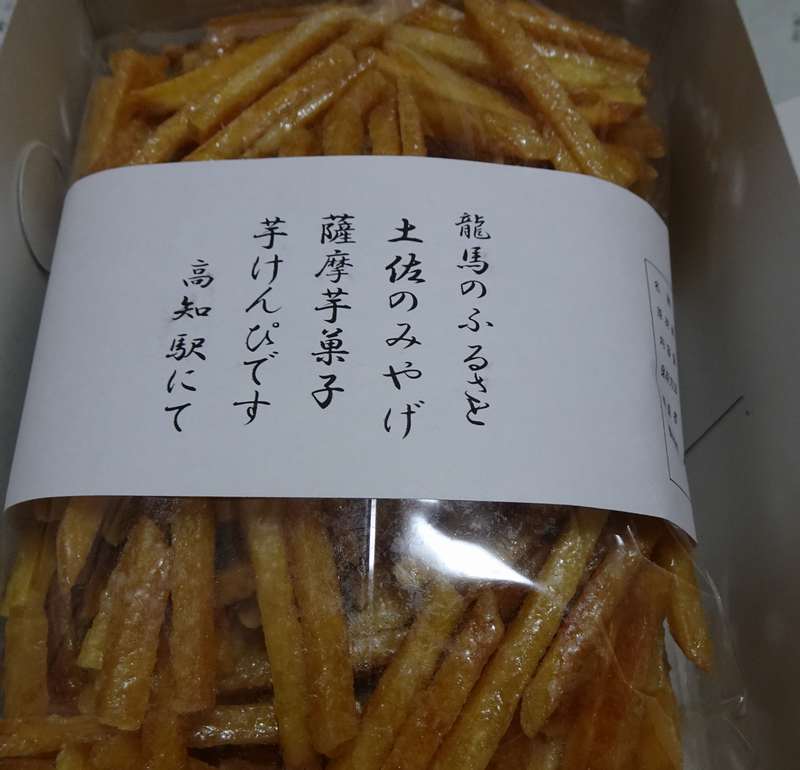 龍馬のふるさと
土佐のみやげ
薩摩芋菓子
芋けんぴです
高知駅にて